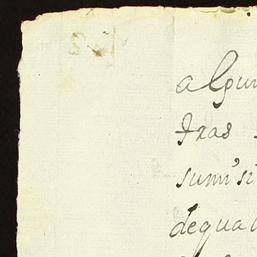 algun
tras
sumisi
dequa